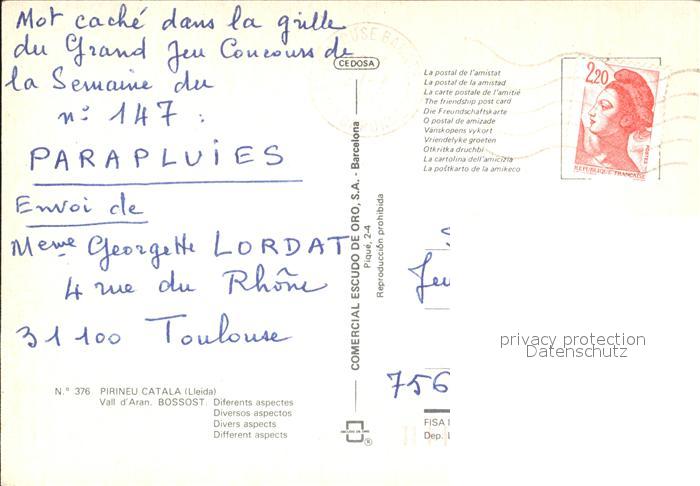 Mot caché dans la grille
du Grand Jeu Concours de
la Semaine du
n° 147 :
PARAPLUiES
Envoi de
Meme Georgette LORDAT
4 rue du Rhône
31100 Toulouse
N.° 376 PIRINEU CATALA (Lleida)
Vall d'Aran. BOSSOST. Diferents aspectes
Diversos aspectos
Divers aspects
Different aspects
CEDOSA
COMERCIAL ESCUDO DE ORO, S.A. - Barcelona
Piqué, 2-4
Reproducción prohibida
ESCUDO DE ORO
®
La postal de l'amistat
La postal de la amistad
La carte postale de l'amitié
The friendship post card
Die Freundschaftskarte
O postal de amizade
Vanskopens vykort
Vriendelyke groeten
Otkritka druchbi
La cartolina dell'amicizia
La poŝtkarto de la amikeco
2,20
POSTES
REPUBLIQUE FRANÇAISE
Jeu
756
privacy protection
Datenschutz
FISA
Dep. L